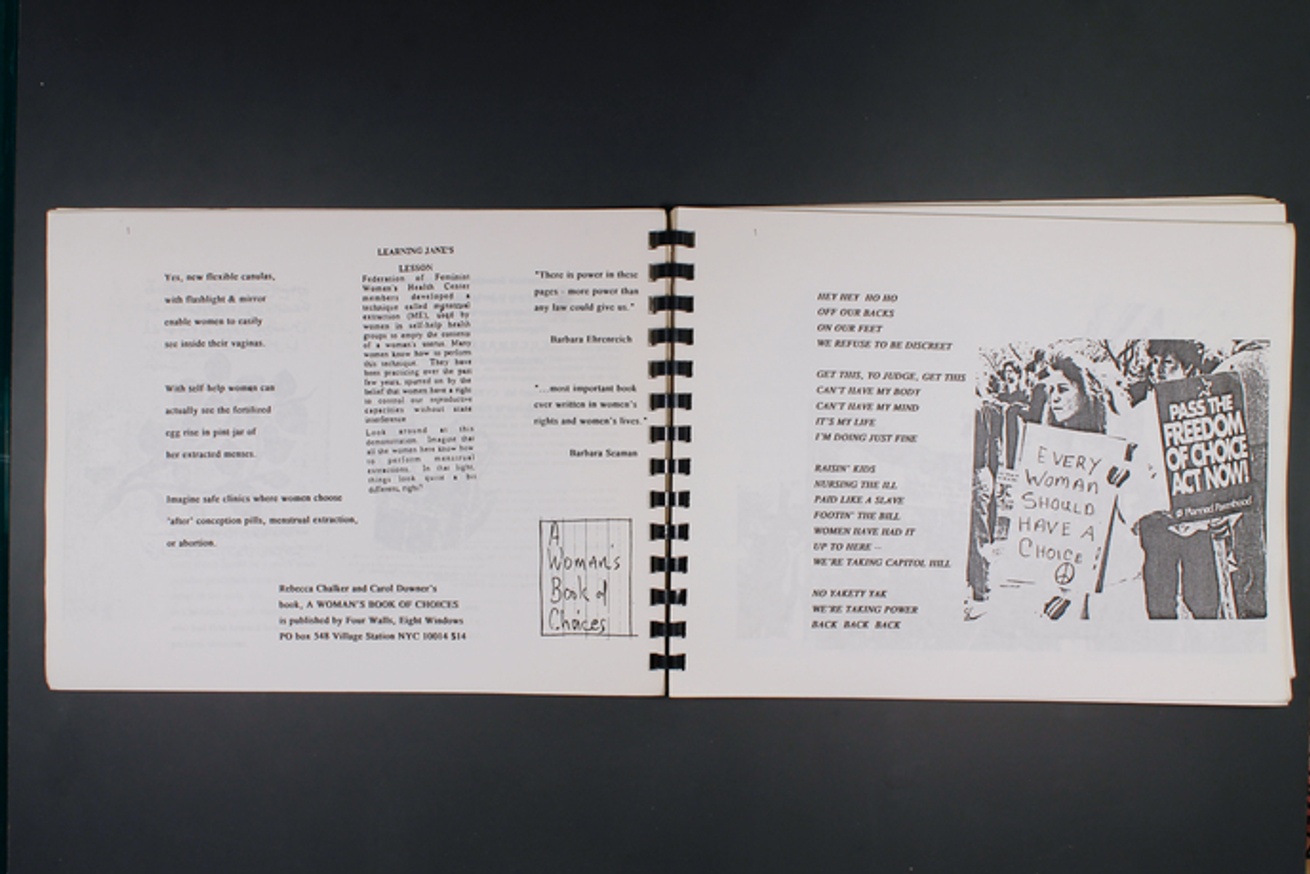 Yes, new flexible canulas,
with flashlight & mirror
enable women to easily
see inside their vaginas.
With self-help women can
actually see the fertilized
egg rise in pint jar of
her extracted menses.
Imagine safe clinics where women choose
'after' conception pills, menstrual extraction,
or abortion.
LEARNING JANE'S
LESSON
Federation of Feminist
Women's Health Center
members developed a
technique called menstrual
extraction (ME), used by
women in self-help health
groups to empty the contents
of a woman's uterus. Many
women know how to perform
this technique. They have
been practicing over the past
few years, spurred on by the
belief that women have a right
to control our reproductive
capacities without state
interference
Look around at this
demonstration. Imagine that
all the women here know how
to perform menstrual
extractions. In that light,
things look quite a bit
different, right?
"There is power in these
pages - more power than
any law could give us."
Barbara Ehrenreich
"...most important book
ever written in women's
rights and women's lives."
Barbara Seaman
Rebecca Chalker and Carol Downer's
book, A WOMAN'S BOOK OF CHOICES
is published by Four Walls, Eight Windows
PO box 548 Village Station NYC 10014 $14
A
Woman's
Book of
Choices
HEY HEY HO HO
OFF OUR BACKS
ON OUR FEET
WE REFUSE TO BE DISCREET
GET THIS, YO JUDGE, GET THIS
CAN'T HAVE MY BODY
CAN'T HAVE MY MIND
IT'S MY LIFE
I'M DOING JUST FINE
RAISIN' KIDS
NURSING THE ILL
PAID LIKE A SLAVE
FOOTIN' THE BILL
WOMEN HAVE HAD IT
UP TO HERE --
WE'RE TAKING CAPITOL HILL
NO YAKETY YAK
WE'RE TAKING POWER
BACK BACK BACK
EVERY
WOMAN
SHOULD
HAVE A
CHOICE
PASS THE
FREEDOM
OF CHOICE
ACT NOW!
Planned Parenthood